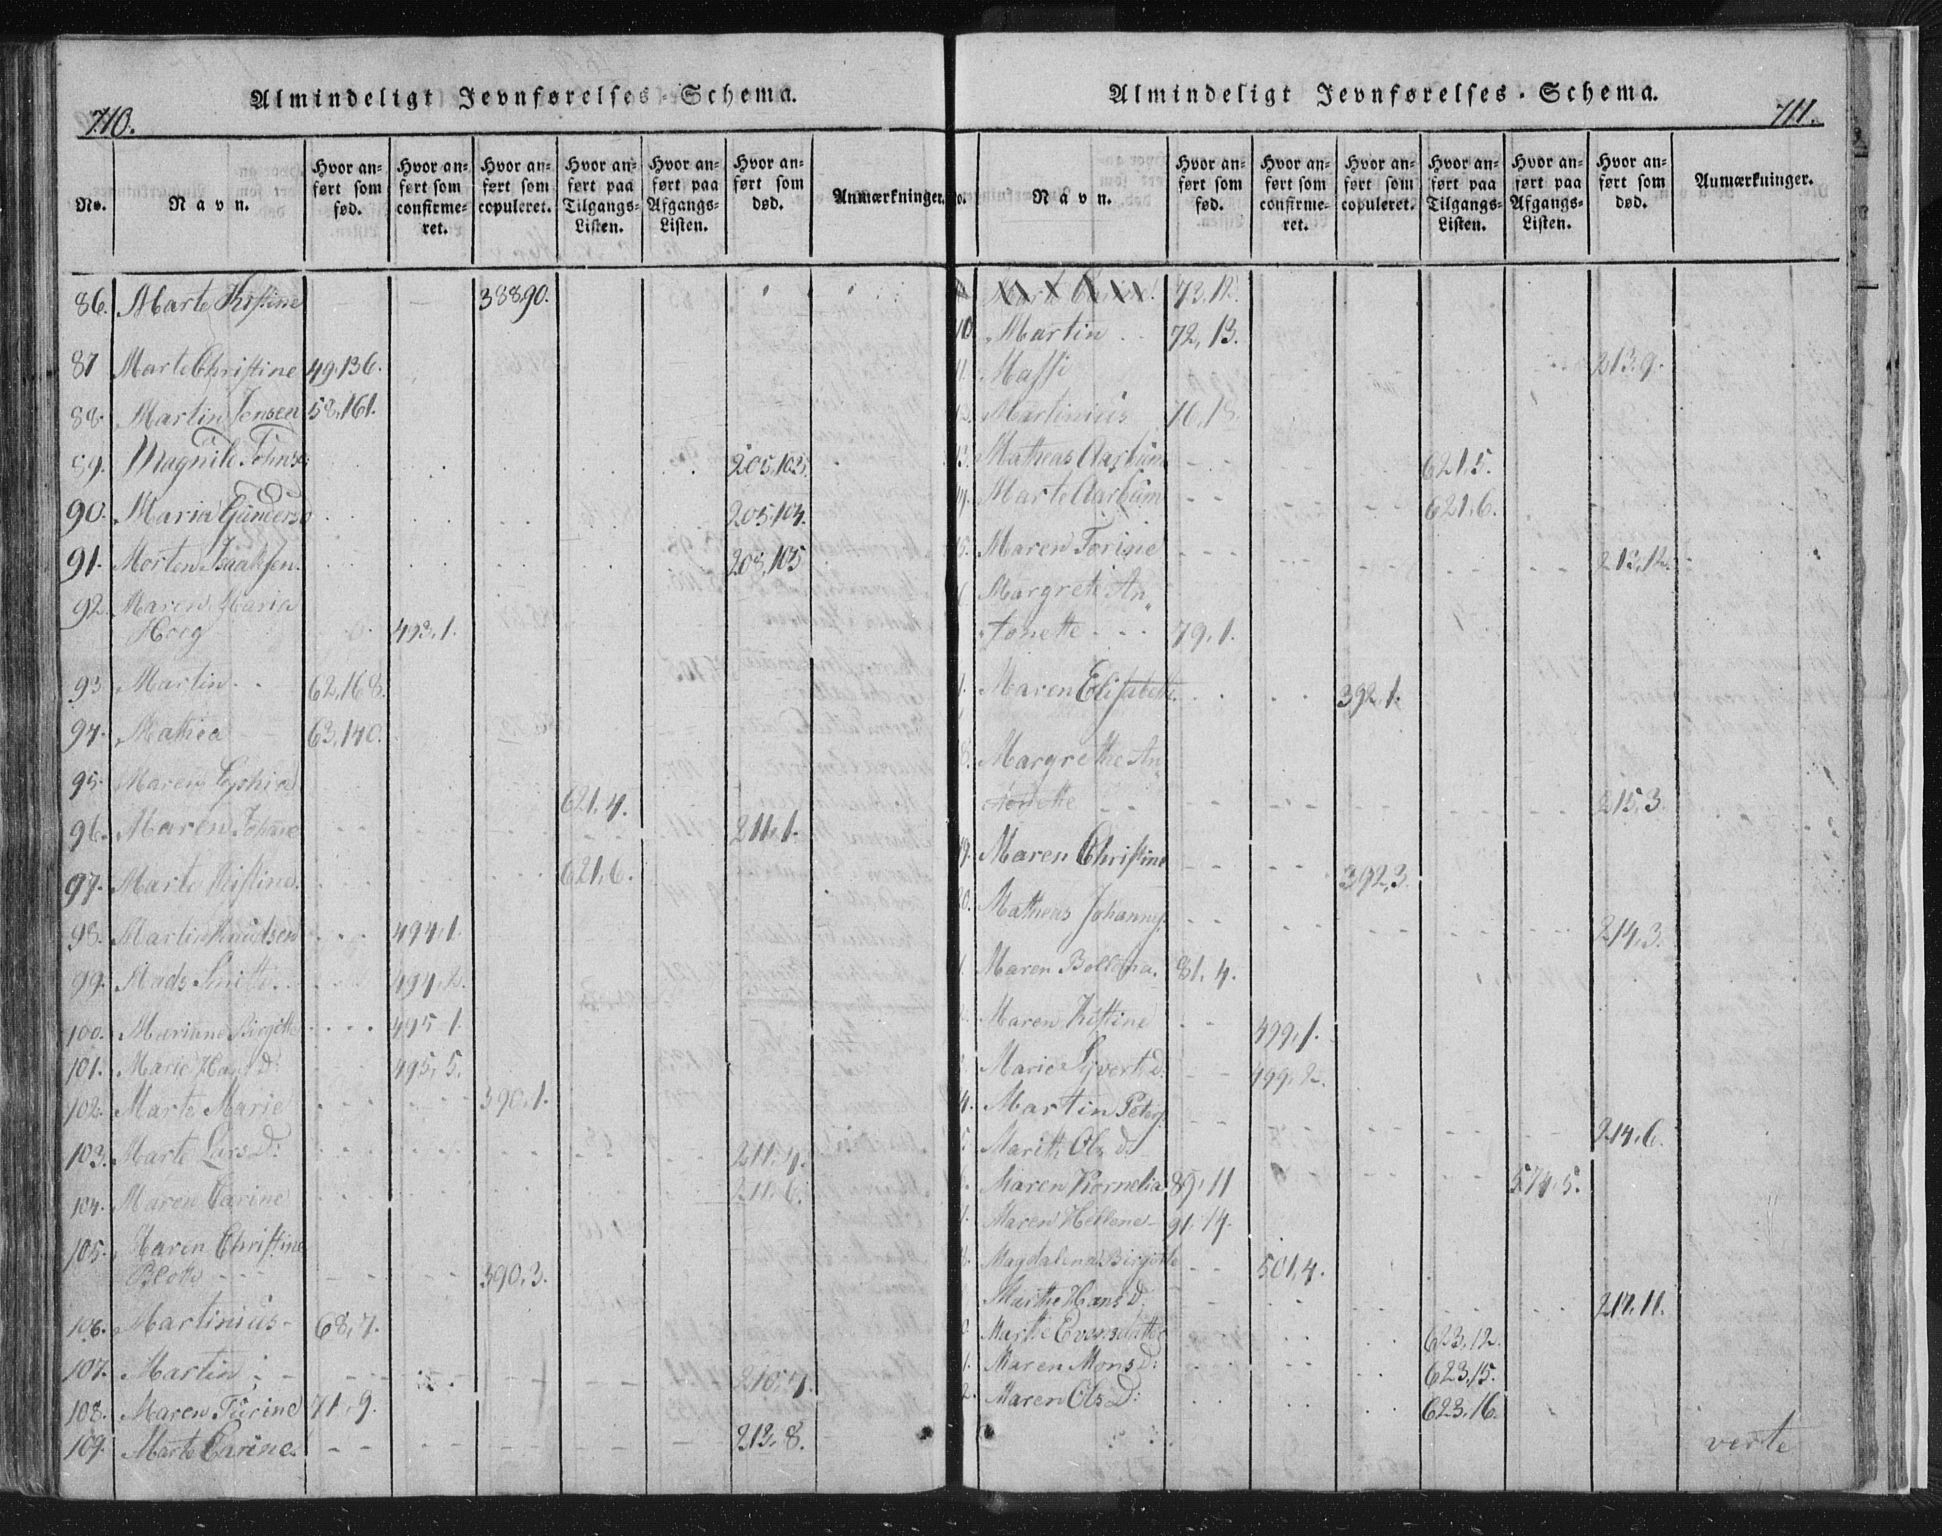 710.
Almindeligt Jevnførelses-Schema.
No.
Navn.
Hvor an-
ført som
fød.
Hvor an-
ført som
confirme-
ret.
Hvor an-
ført som
copuleret.
Hvor an-
ført paa
Tilgangs-
Listen.
Hvor an-
ført paa
Afgangs-
Listen.
Hvor an-
ført som
død.
Anmærkninger.
86. Marte Kistine 388,90.
87 Marte Christine 49,136.
88. Martin Jensen 58,161.
89. Magnild Johns 205,102
90. Maria Gunders 205,104.
91. Morten Isaaksen. 208,105
92. Maren Maria
Horg 493,1.
93 Martin 62,168.
94. Mathea 63,140.
95. Maren 621,4.
96. Maren Johane 211,1.
97. Marte Kistine. 621,6.
98. Martin Knudsen 494,1.
99. Mads Smith 494,2.
100. Mariane Birgitte 495,1.
101. Marie D: 495,5.
102. Marte Marie 390,1.
103. Marte Lars D: 211,4.
104. Maren Karine 211,6.
105. Maren Christine
Blok 390,3.
106. Martinius 68,7.
107. Martin 210,7.
108. Maren Turine 71,9.
109. Marte Carine. 212,8.
711.
Almindeligt Jevnførelses-Schema.
No.
Navn.
Hvor an-
ført som
fød.
Hvor an-
ført som
confirme-
ret.
Hvor an-
ført som
copuleret.
Hvor an-
ført paa
Tilgangs-
Listen.
Hvor an-
ført paa
Afgangs-
Listen.
Hvor an-
ført som
død.
Anmærkninger.
72,12.
10. Martin 72,13.
Massi 213,9.
Martinius 76,18.
Matheas Aarbum 621,5.
Marte Aarbum 621,6.
Maren Torine 213,12.
Margrete An-
tonette 79,1.
Maren Elisabeth 392,1.
Margrethe An-
tonette 215,3.
Maren Christine 392,3.
Matheas Johannis 214,3.
Maren Bollona. 81,4.
Maren Kistine 499,1.
Marie Syvert D. 499,2.
Martin Peters 214,6.
Marith Ols D.
Maren Kornelia 89,11 574,5.
Maren Hellene 91,14.
Magdalena Birgitte 501,4.
Marthe Hans D. 217,11.
Marte Evensdatter 623,12.
Maren Mons D: 623,15.
Maren Ols D: 623,16.
verte